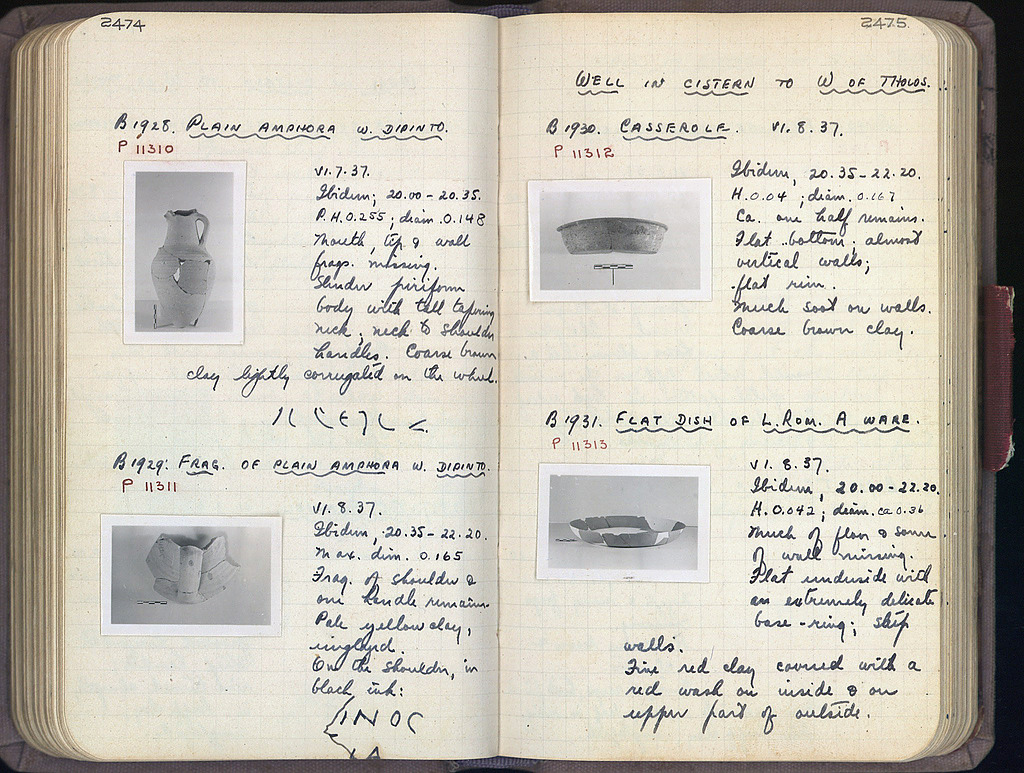 2474
B 1928. PLAIN AMPHORA W. DIPINTO.
P 11310
VI.7.37.
Ibidem; 20.00-20.35.
P.H. 0.255; diam. 0.148
Mouth, tip & wall
frags. missing.
Slender piriform
body with tall tapering
neck; neck to shoulder
handles. Coarse brown
clay lightly corrugated on the wheel.
B 1929. FRAG. OF PLAIN AMPHORA W. DIPINTO.
P 11311
VI.8.37.
Ibidem, 20.35-22.20.
Max. dim. 0.165
Frag. of shoulder &
one handle remains.
Pale yellow clay,
unglazed.
On the shoulder, in
black ink:
INOC
2475.
WELL IN CISTERN TO W OF THOLOS.
B 1930. CASSEROLE. VI.8.37.
P 11312
Ibidem, 20.35-22.20.
H. 0.04; diam. 0.167
Ca. one half remains.
Flat bottom; almost
vertical walls;
flat rim.
Much soot on walls.
Coarse brown clay.
B 1931. FLAT DISH OF L. ROM. A WARE.
P 11313
VI.8.37.
Ibidem, 20.00-22.20.
H. 0.042; diam. ca 0.36
Much of floor & some
of wall missing.
Flat underside with
an extremely delicate
base-ring; steep
walls.
Fine red clay covered with a
red wash on inside & on
upper part of outside.